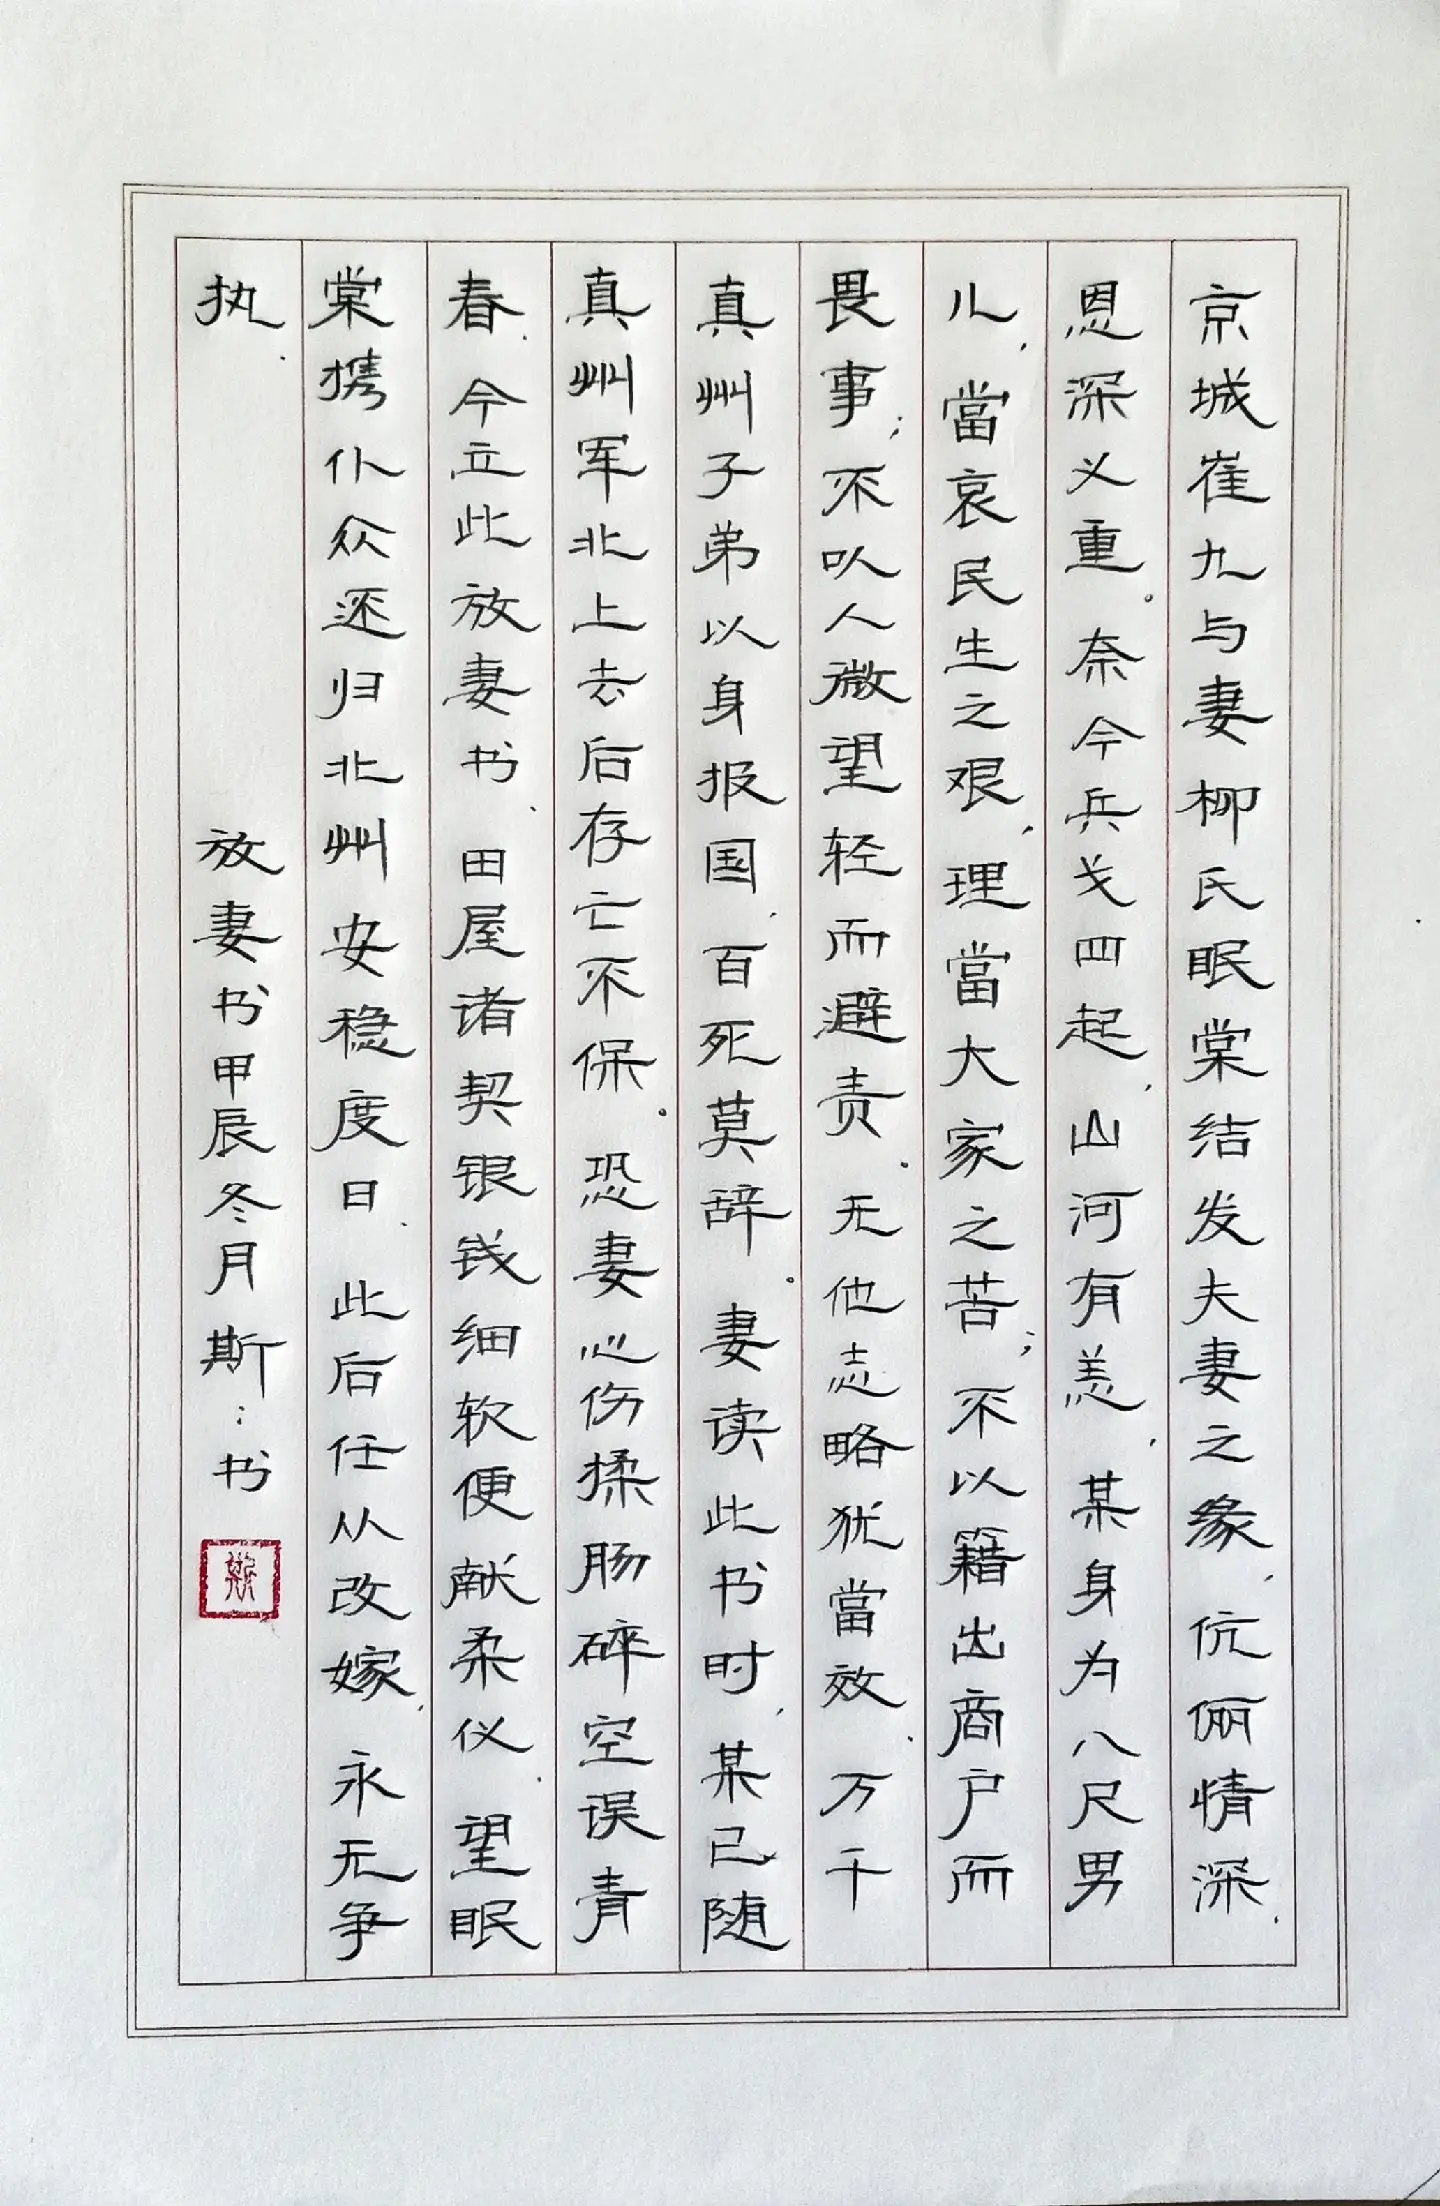 京城崔九与妻柳氏眠棠结发夫妻之缘,伉俪情深,
恩深义重。奈今兵戈四起,山河有恙,某身为八尺男
儿,當哀民生之艰,理當大家之苦;不以籍出商户而
畏事;不以人微望轻而避责。无他志略犹當效,万千
真州子弟以身报国,百死莫辞。妻读此书时,某已随
真州军北上去后存亡不保。恐妻心伤揉肠碎空误青
春,今立此放妻书、田屋诸契银钱细软便献柔仪.望眠
棠携仆众还归北州安稳度日.此后任从改嫁,永无争
执.
放妻书甲辰冬月斯:书
斯